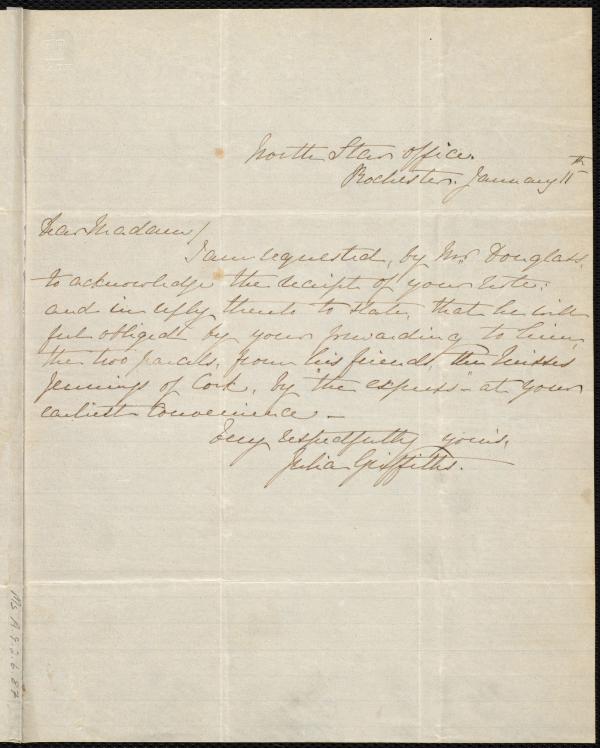 North Star office.
Rochester. January 11th
Dear Madam/
I am requested, by Mr. Douglass,
to acknowledge the receipt of your note;
and in reply thereto to state, that he will
feel obliged by your forwarding to him,
the two parcels, from his friends, the Misses
Jennings of Cork, by "the express" at your
earliest convenience –
Very respectfully yours,
Julia Griffiths.
Ms A.9.2.6.87